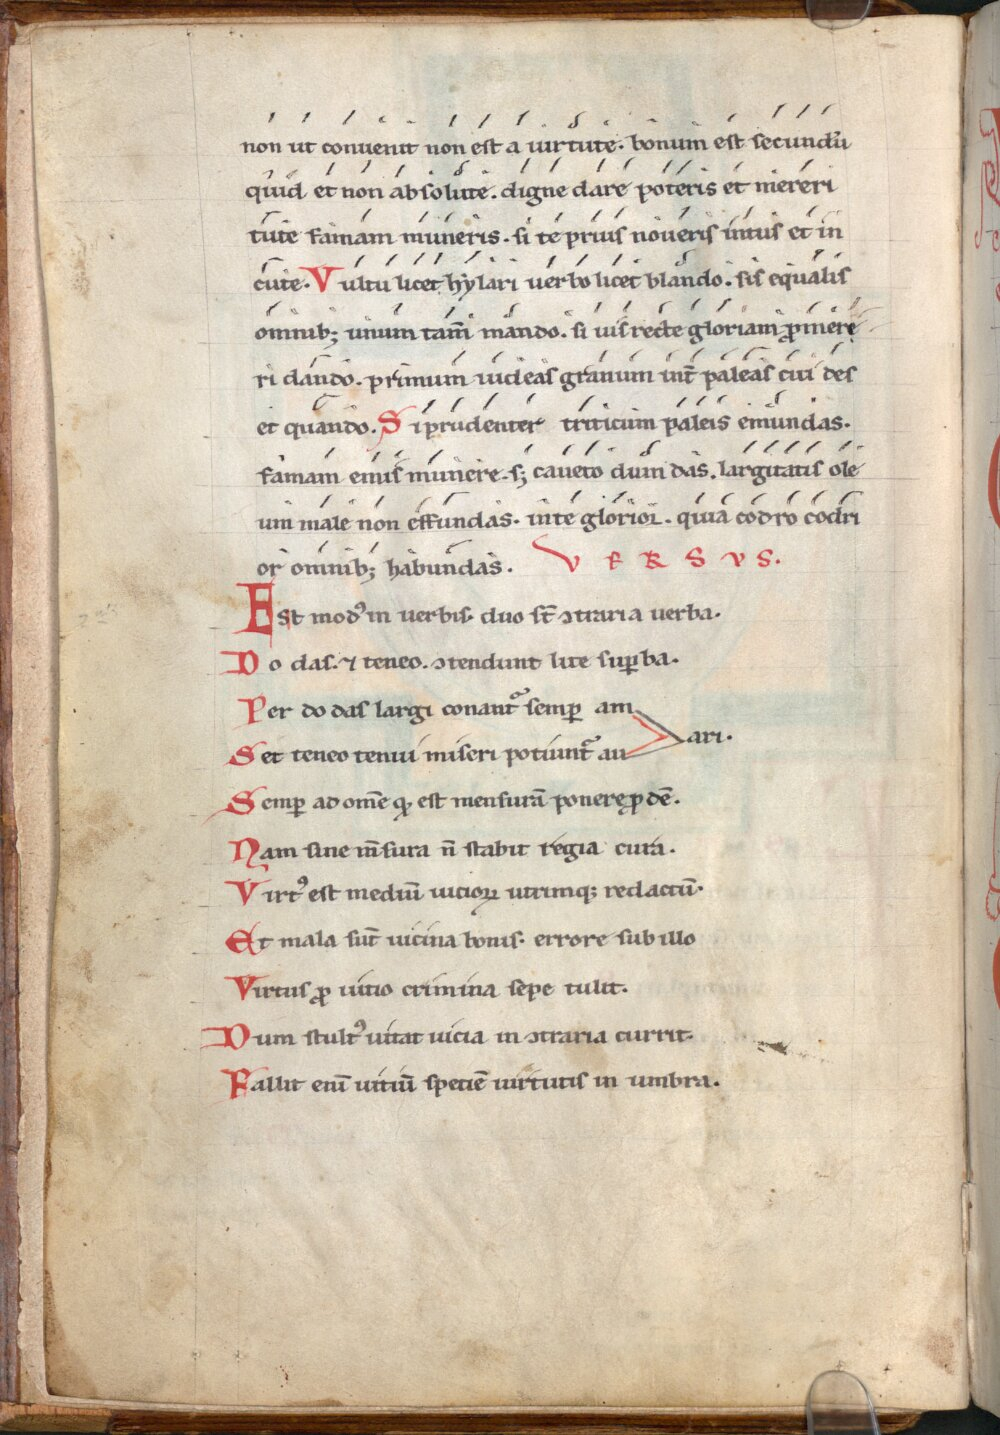 non ut conuenit non est a uirtute. bonum est secundũ
quid et non absolute. digne dare poteris et mereri
tute famam muneris. si te prius noueris intus et in
cute. Vultu licet hylari uerbo licet blando. sis equalis
omnib; unum tam̄ mando. si uis recte gloriam ꝓmere
ri dando. primum uideas granum int̄ paleas cui des
et quando. Si prudenter triticum paleis emundas.
famam emis munere. sꝫ caueto dum das. largitatis ole
um male non effundas. in te glorior. quia codro codri
or omnib; habundas. VERSVS.
Est modꝰ in uerbis. duo st̄ ↄtraria uerba.
Do das. ⁊ teneo. ↄtendunt lite suꝑba.
Per do das largi conant᷑ semꝑ am
ari.
Set teneo tenui miseri potiunt᷑ au
Semꝑ ad om̄e qđ est mensurā ponere ꝓdē.
Nam sine m̄sura n̄ stabit regia cura.
Virtꝰ est mediū uicioꝝ utrimq; redactū.
Et mala sūt uicina bonis. errore sub illo
Virtus ꝓ uitio crimina sepe tulit.
Dum stultꝰ uitat uicia in ↄtraria currit.
Fallit enī uitiū speciē uirtutis in umbra.